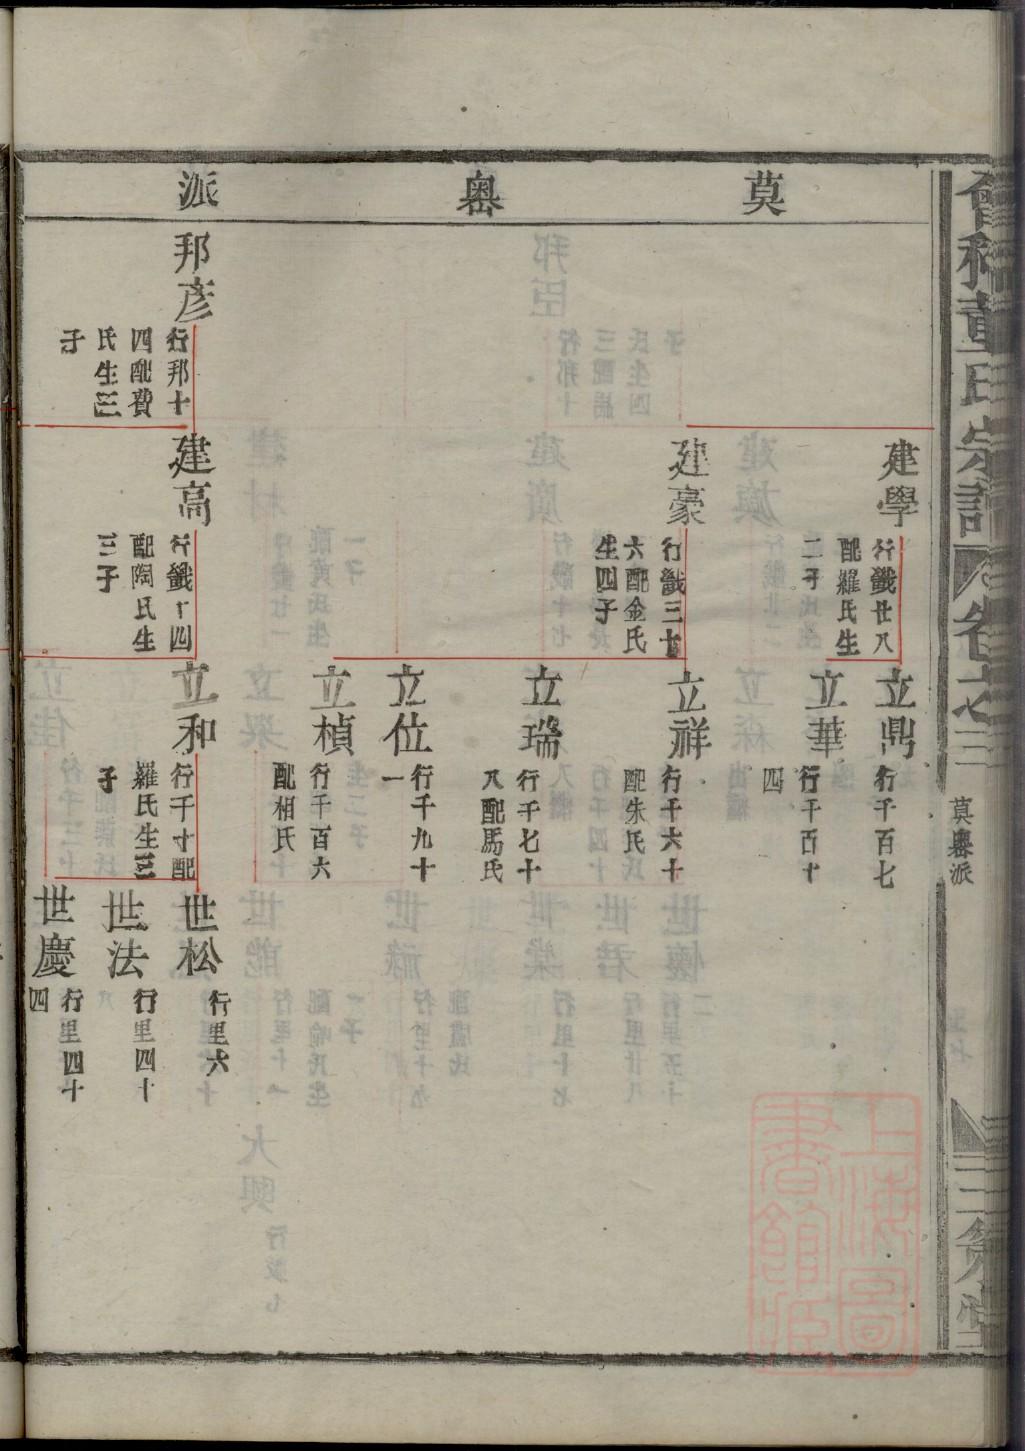 莫粵派
邦彥
行邦十
四配費
氏生三
子
建學
行籛廿八
配羅氏生
二子
建豪
行籛三十
六配金氏
生四子
建高
行籛十四
配陶氏生
三子
立鼎
行千百七
立華
行千百十
四
立祥
行千六十
配朱氏
立瑞
行千七十
八配馬氏
立位
行千九十
一
立楨
行千百六
配相氏
立和
行千十配
羅氏生三
子
世松
行里六
世法
行里四十
世慶
行里四十
四
會稽董氏宗譜
卷之三
莫粵派
上海圖書館藏